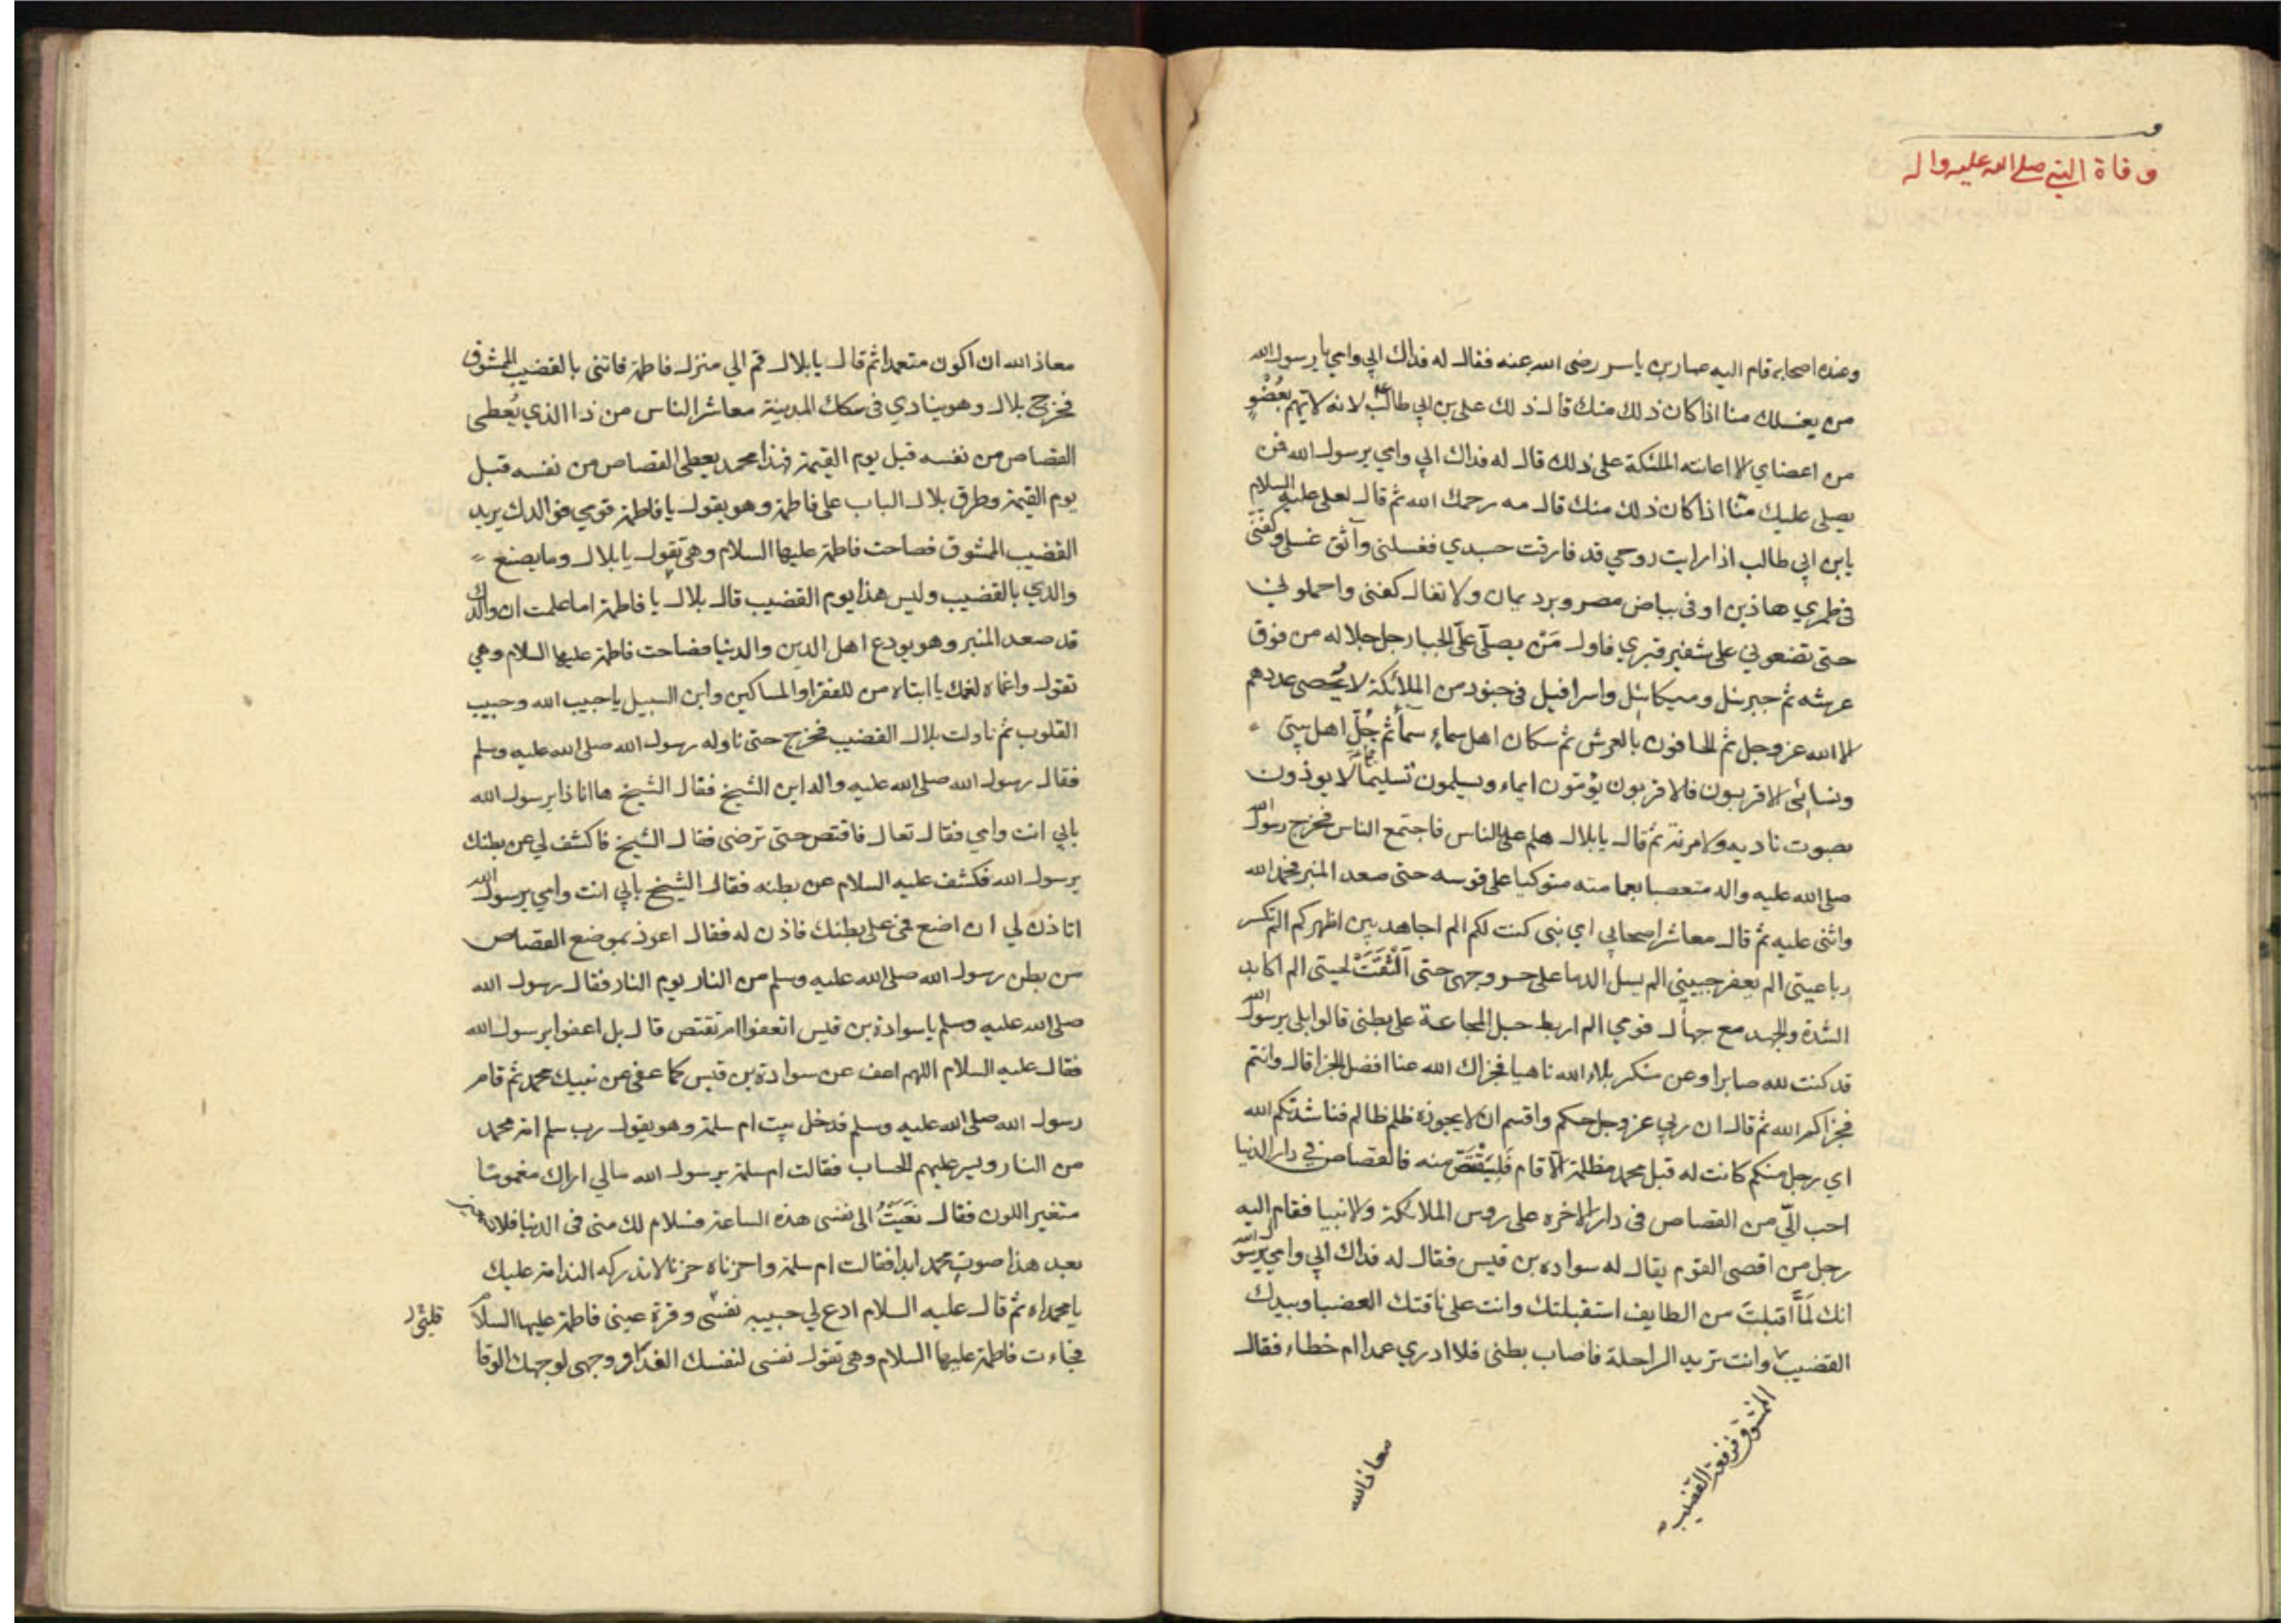 وفاة النبي صلى الله عليه واله
وعنده اصحابه قام اليه عمار بن ياسر رضى الله عنه فقال له فداك ابي وامي يا رسول الله
من يغسلك منا اذا كان ذلك منك قال ذلك على بن ابي طالب لانه لا يهم بعُضْوٍ
من اعضاي الا اعانته الملئكة على ذلك قال له فداك ابي وامي يرسول الله فمن
يصلى عليك منّا اذا كان ذلك منك قال مه رحمك الله ثم قال لعلى عليه السلام
يابن ابي طالب اذا رايت روحي قد فارقت جسدي فغسلنى وآنق غسلى وكفنّى
فى طمري هاذين او فى بياض مصر وبرد يمان ولا تغال كفنى واحملونى
حتى تضعونى على شفير قبري فاول مَنْ يصلّى علّى الجبار جل جلاله من فوق
عرشه ثم جبرئل وميكائيل واسرافيل فى جنود من الملائكة لا يُحصى عددهم
الا الله عز وجل ثم الحافون بالعرش ثم سكان اهل سماءٍ سماً ثم جُلّ اهل بيتى
ونسائى الاقربون فالاقربون يؤمّون ايماء ويسلمون تسليماً لا يوذون
بصوت ناديه ولا مرنة ثم قال يا بلال هلم على الناس فاجتمع الناس فخرج رسول الله
صلى الله عليه واله متعصبا بعمامته متوكيا على قوسه حتى صعد المنبر فحمد الله
واثنى عليه ثم قال معاشر اصحابي اي نبى كنت لكم الم اجاهد بين اظهركم الم تكسر
رباعيتى الم يعفر جبينى الم يسل الدما على حر وجهى حتى الْثقَتْ لحيتى الم اكابد
الشدة والجهد مع جهال قومي الم اربط حبل المجاعة على بطنى قالوا بلى يرسول الله
قد كنت لله صابرا وعن منكر بلاء الله ناهيا فجزاك الله عنا افضل الجزا قال وانتم
فجزاكم الله ثم قال ان ربي عز وجل حكم واقسم ان لا يجوزه ظلم ظالم فناشدتكم الله
اي رجل منكم كانت له قبل محمد مظلمة الّا قام فَليَقْتَصّ منه فالقصاص في دار الدنيا
احب الّي من القصاص فى دار الاخره على روس الملائكة والانبيا فقام اليه
رجل من اقصى القوم يقال له سواده بن قيس فقال له فداك ابي وامي يرسول الله
انك لَمّا اقبلتَ من الطايف استقبلتك وانت على ناقتك العضبا وبيدك
القضيب وانت تريد الراحلة فاصاب بطنى فلا ادري عمدا ام خطاء فقال
الممشوق فرفعة القضيب
معاذ الله
معاذ الله ان اكون متعمدا ثم قال يا بلال قم الي منزل فاطمة فاتنى بالقضيب الممشوق
فخرج بلال وهو ينادي فى سكك المدينة معاشر الناس من ذا الذي يُعطى
القصاص من نفسه قبل يوم القيمة فهذا محمد يعطى القصاص من نفسه قبل
يوم القيمة وطرق بلال الباب على فاطمة وهو يقول يا فاطمة قومي فوالدك يريد
القضيب الممشوق فصاحت فاطمة عليها السلام وهى تقول يا بلال وما يصنع
والدي بالقضيب وليس هذا يوم القضيب قال بلال يا فاطمة اما علمت ان والدك
قد صعد المنبر وهو يودع اهل الدين والدنيا فصاحت فاطمة عليها السلام وهي
تقول واغماه لغمك يا ابتاه من للفقرا والمساكين وابن السبيل ياحبيب الله وحبيب
القلوب ثم ناولت بلال القضيب فخرج حتى ناوله رسول الله صلى الله عليه وسلم
فقال رسول الله صلى الله عليه واله اين الشيخ فقال الشيخ ها انا ذا يرسول الله
بابي انت وامي فقال تعال فاقتص حتى ترضى فقال الشيخ فاكشف لي عن بطنك
يرسول الله فكشف عليه السلام عن بطنه فقال الشيخ بابي انت وامي يرسول الله
اتاذن لي ان اضع فمى على بطنك فاذن له فقال اعوذ بموضع القصاص
من بطن رسول الله صلى الله عليه وسلم من النار يوم النار فقال رسول الله
صلى الله عليه وسلم يا سوادة بن قيس اتعفوا ام تقتص قال بل اعفوا يرسول الله
فقال عليه السلام اللهم اعف عن سوادة بن قيس كما عفى عن نبيك محمد ثم قام
رسول الله صلى الله عليه وسلم فدخل بيت ام سلمة وهو يقول رب سلم امة محمد
من النار ويسر عليهم الحساب فقالت ام سلمة يرسول الله مالي اراك مغموما
متغير اللون فقال نعَيَتُ الى نفسى هذه الساعة فسلام لك منى فى الدنيا فلا
بعد هذا صوت محمد ابدا فقالت ام سلمة واحزناه حزنا لا تدركه الندامة عليك
يا محمداه ثم قال عليه السلام ادع لي حبيبه نفسى وقرة عينى فاطمة عليها السلام
فجاءت فاطمة عليها السلام وهى تقول نفسى لنفسك الفدا ووجهى لوجهك الوقا